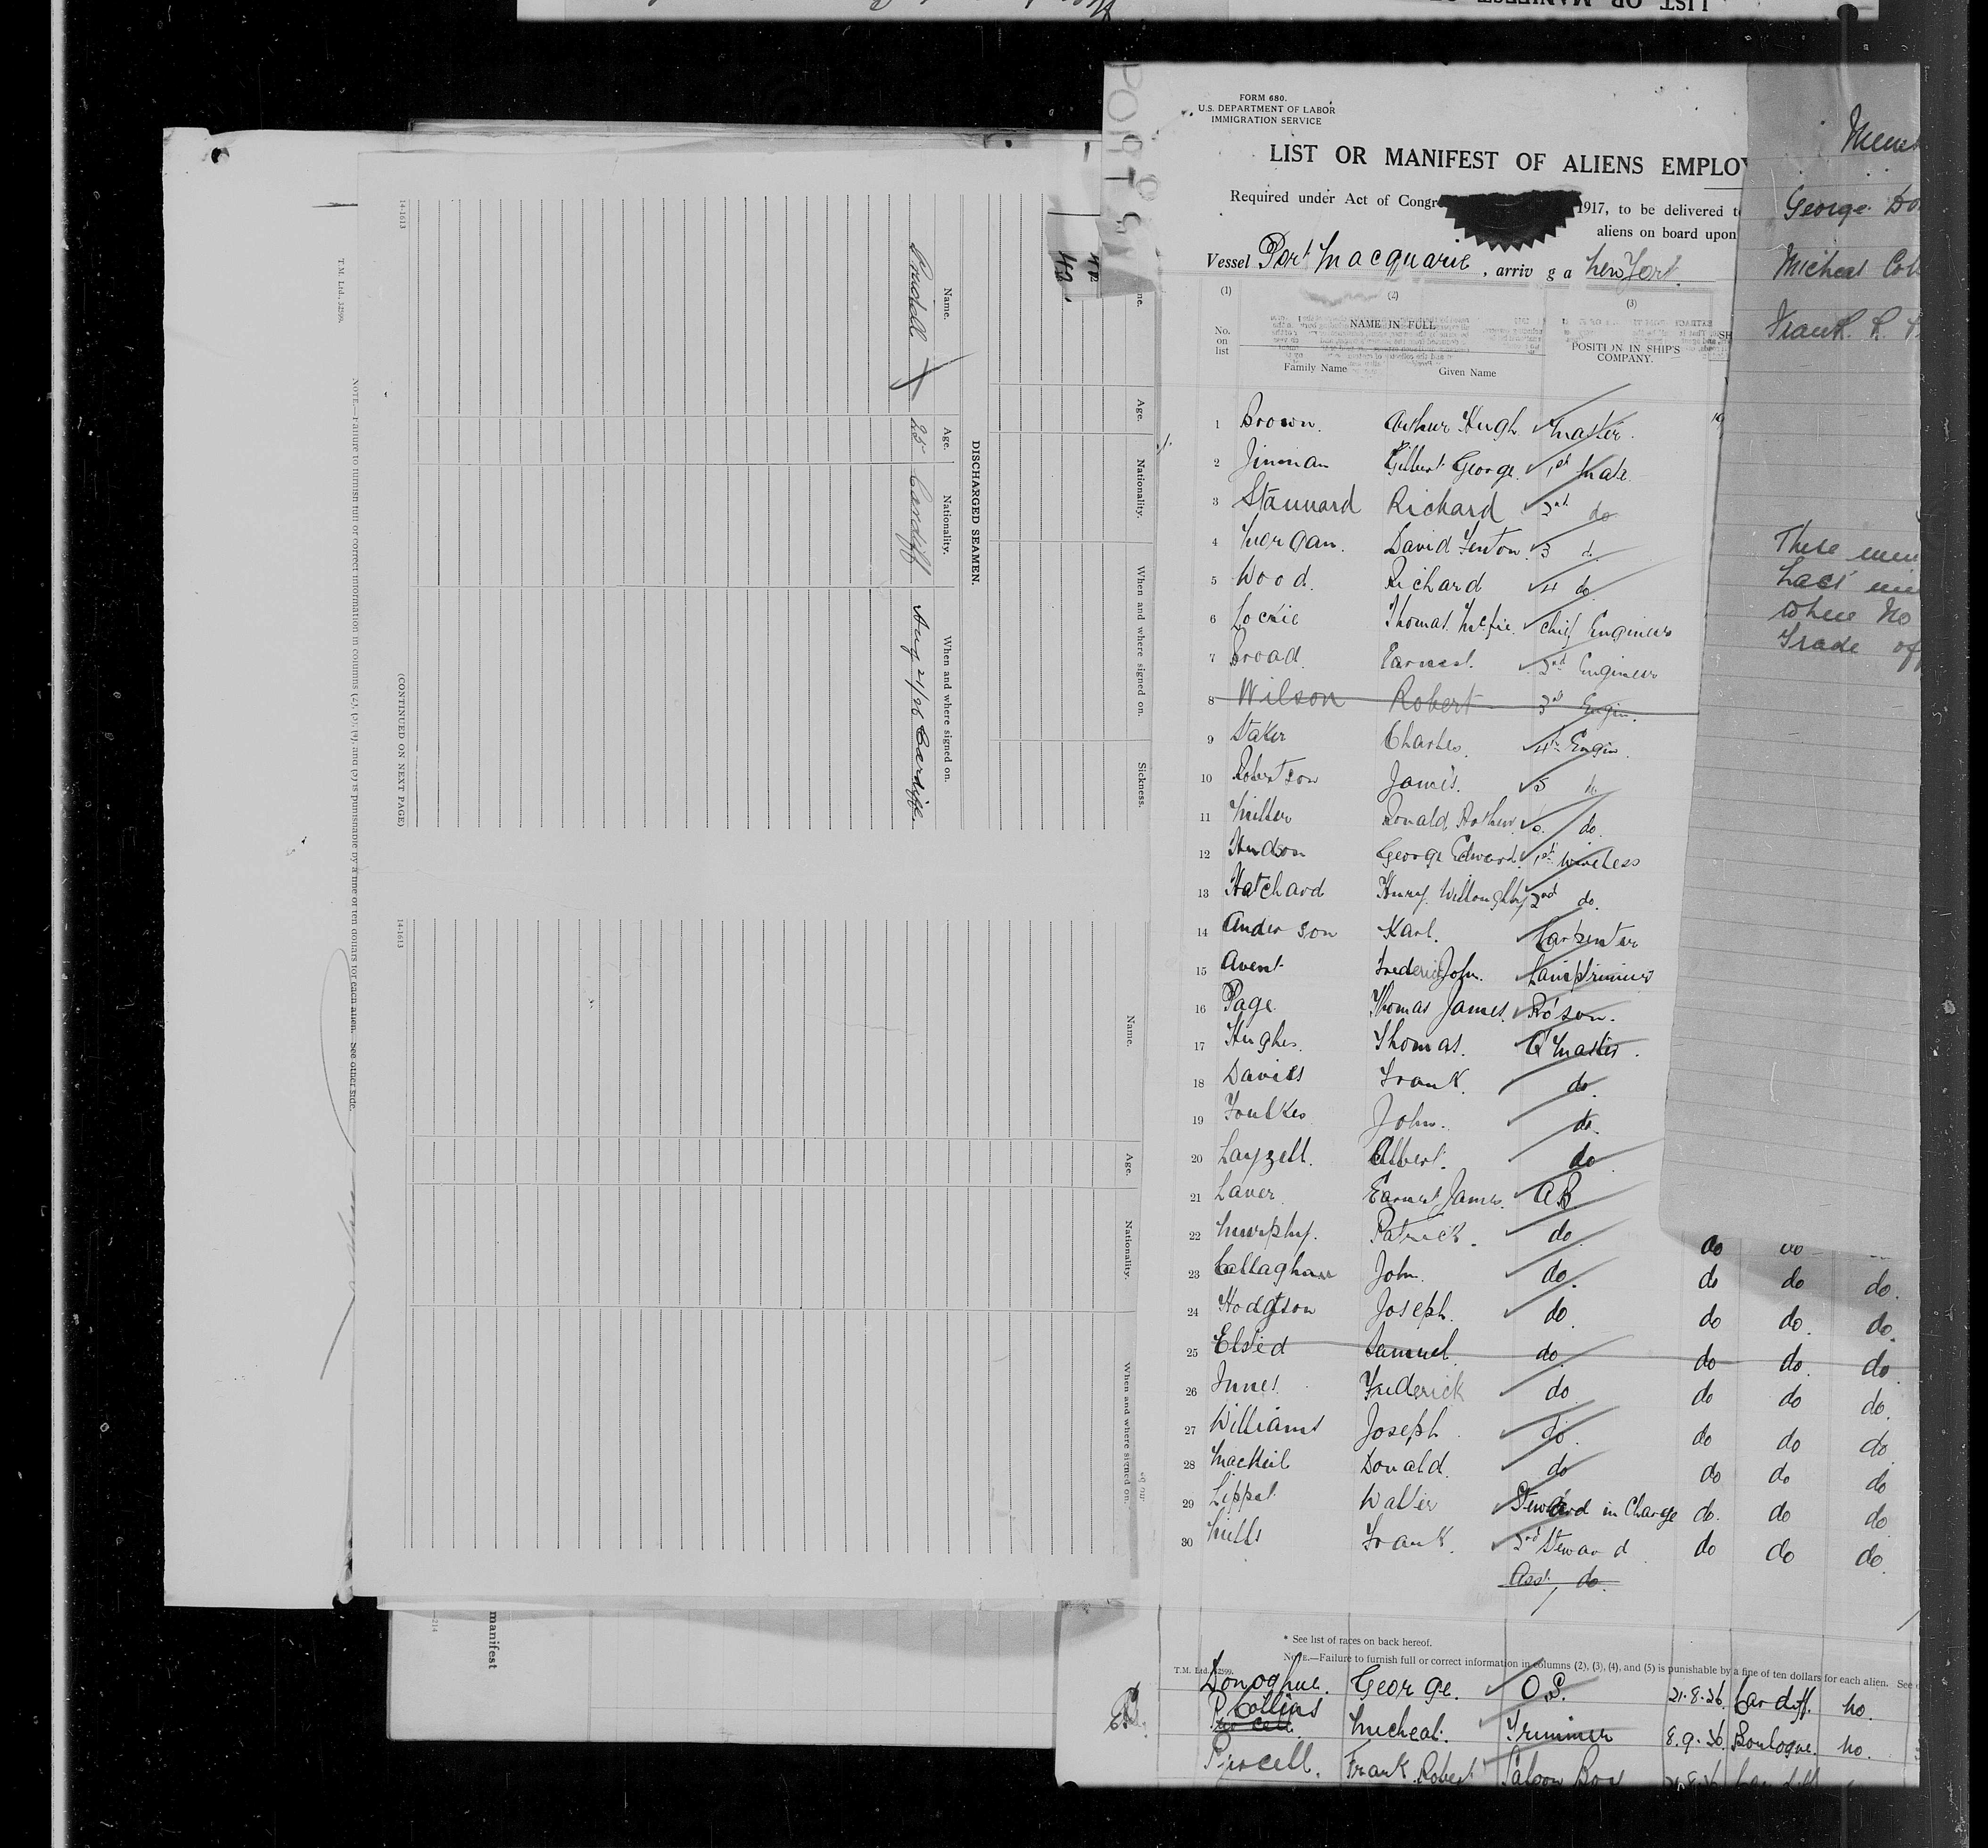 LIST OR MANIFEST OF
FORM 680.
U.S. DEPARTMENT OF LABOR
IMMIGRATION SERVICE
LIST OR MANIFEST OF ALIENS EMPLOY
Required under Act of Congre 1917, to be delivered t
aliens on board upon
Vessel Port Macquarie, arriv g a New York.
(1) (2) (3)
No. on list
NAME IN FULL
POSITION IN SHIP'S COMPANY.
Family Name Given Name
1 Brown. Arthur Hugh Master.
2 Jinman Gilbert George. 1st Mate
3 Stannard Richard 2nd do
4 Morgan. David Fenton. 3 d.
5 Wood. Richard 4 do
6 Lockie Thomas McFie. Chief Engineer
7 Broad. Earnest. 2nd Engineer
8 Wilson Robert 3rd Engin.
9 Staker Charles. 4th Engin.
10 Robertson James. 5
11 Miller Ronald Arthur do.
12 Hudson George Edward. 1st Wireless
13 Hatchard Henry Willoughby 2nd do.
14 Anderson Karl. Carpenter
15 Avent Frederick John. Lamptrimmer
16 Page Thomas James. Bo'sun.
17 Hughes. Thomas. Q'Master.
18 Davies Frank. do.
19 Foulkes John. do.
20 Layzell. Albert. do
21 Laver Earnest James. AB
22 Murphy. Patrick. do do
23 Callaghan John. do. do do do.
24 Hodgson Joseph. do. do do. do.
25 Elsted Samuel. do. do do. do
26 Innes. Frederick do do do do.
27 Williams Joseph. do. do do do
28 MacNeil Donald. do do do do
29 Lippet Walter Steward in Charge do. do do
30 Mills Frank. 2nd Steward do do do.
Asst, do.
* See list of races on back hereof.
NOTE.—Failure to furnish full or correct information in columns (2), (3), (4), and (5) is punishable by a fine of ten dollars for each alien. See
T.M. Ltd. 32599.
Donoghue. George. O.S. 21.8.26. Cardiff. No.
Collins Micheal. Trimmer 8.9.26. Boulogne. No.
Purcell. Frank Robert Saloon Boy
George Do
Micheal Coll
Frank. R.
These men
Last min
where No
Trade of
Name. Age. Nationality. When and where signed on. Sickness.
DISCHARGED SEAMEN.
Name. Age. Nationality. When and where signed on.
25 Cardiff Aug 21/26 Cardiff.
(CONTINUED ON NEXT PAGE)
14-1613
T.M. Ltd., 32599.
NOTE.—Failure to furnish full or correct information in columns (2), (3), (4), and (5) is punishable by a fine of ten dollars for each alien. See other side.
Name. Age. Nationality. When and where signed on.
14-1613
manifest